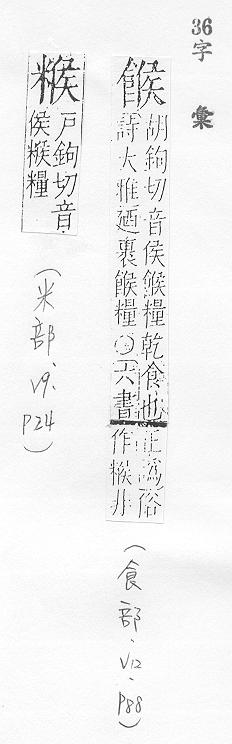 36字彙
餱
胡鉤切音侯餱糧乾食也
詩大雅廼裹餱糧○六書
正譌俗
作糇非
(食部、V12、P88)
糇
戶鉤切音
侯糇糧
(米部、V9、P24)